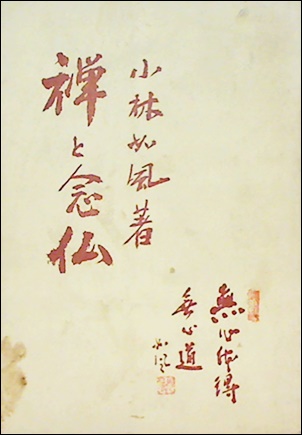 小林如風著
禅と念仏
無心体得
無心道
如風